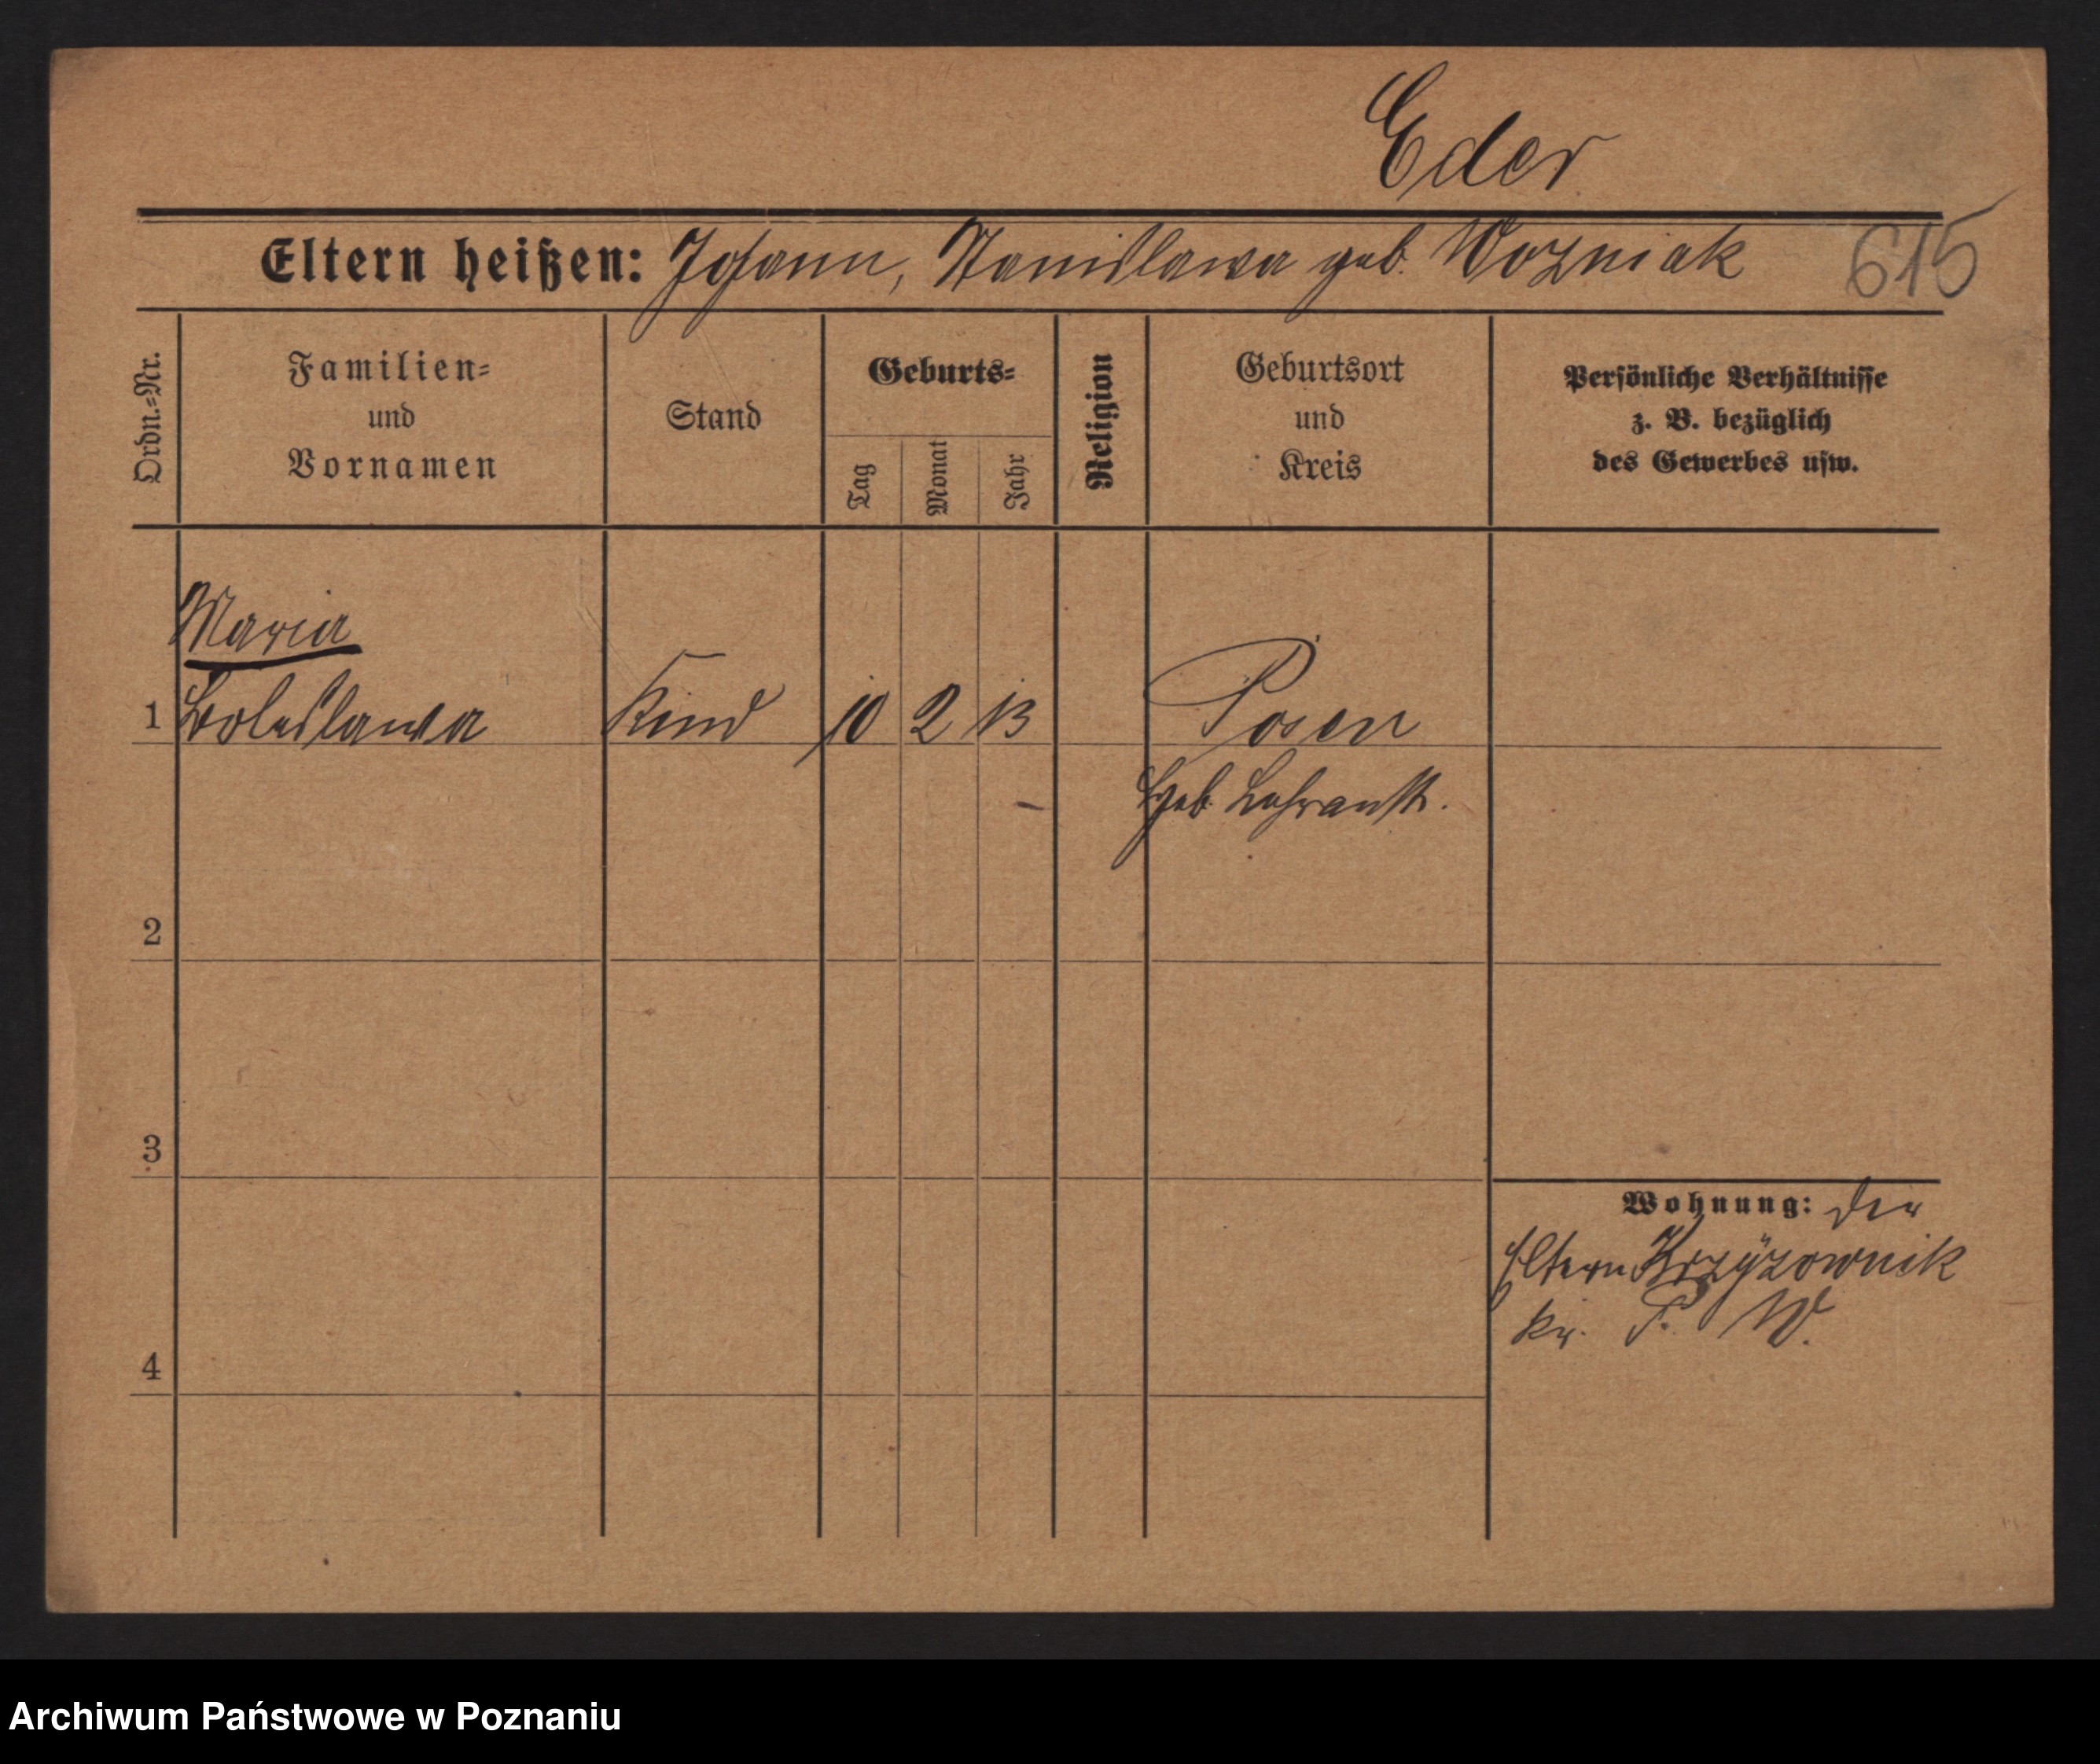 Eder
Eltern heißen: Johann, Stanislawa geb. Wozniak 615
Ordn.-Nr.
Familien-
und
Vornamen
Stand
Geburts-
Tag
Monat
Jahr
Religion
Geburtsort
und
Kreis
Persönliche Verhältnisse
z. B. bezüglich
des Gewerbes usw.
Maria
1 Boleslawa Kind 10 2 13 Posen
Heb. Lehranst.
2
3
Wohnung: der
Eltern Krzyżownik
Kr. P. W.
4
Archiwum Państwowe w Poznaniu